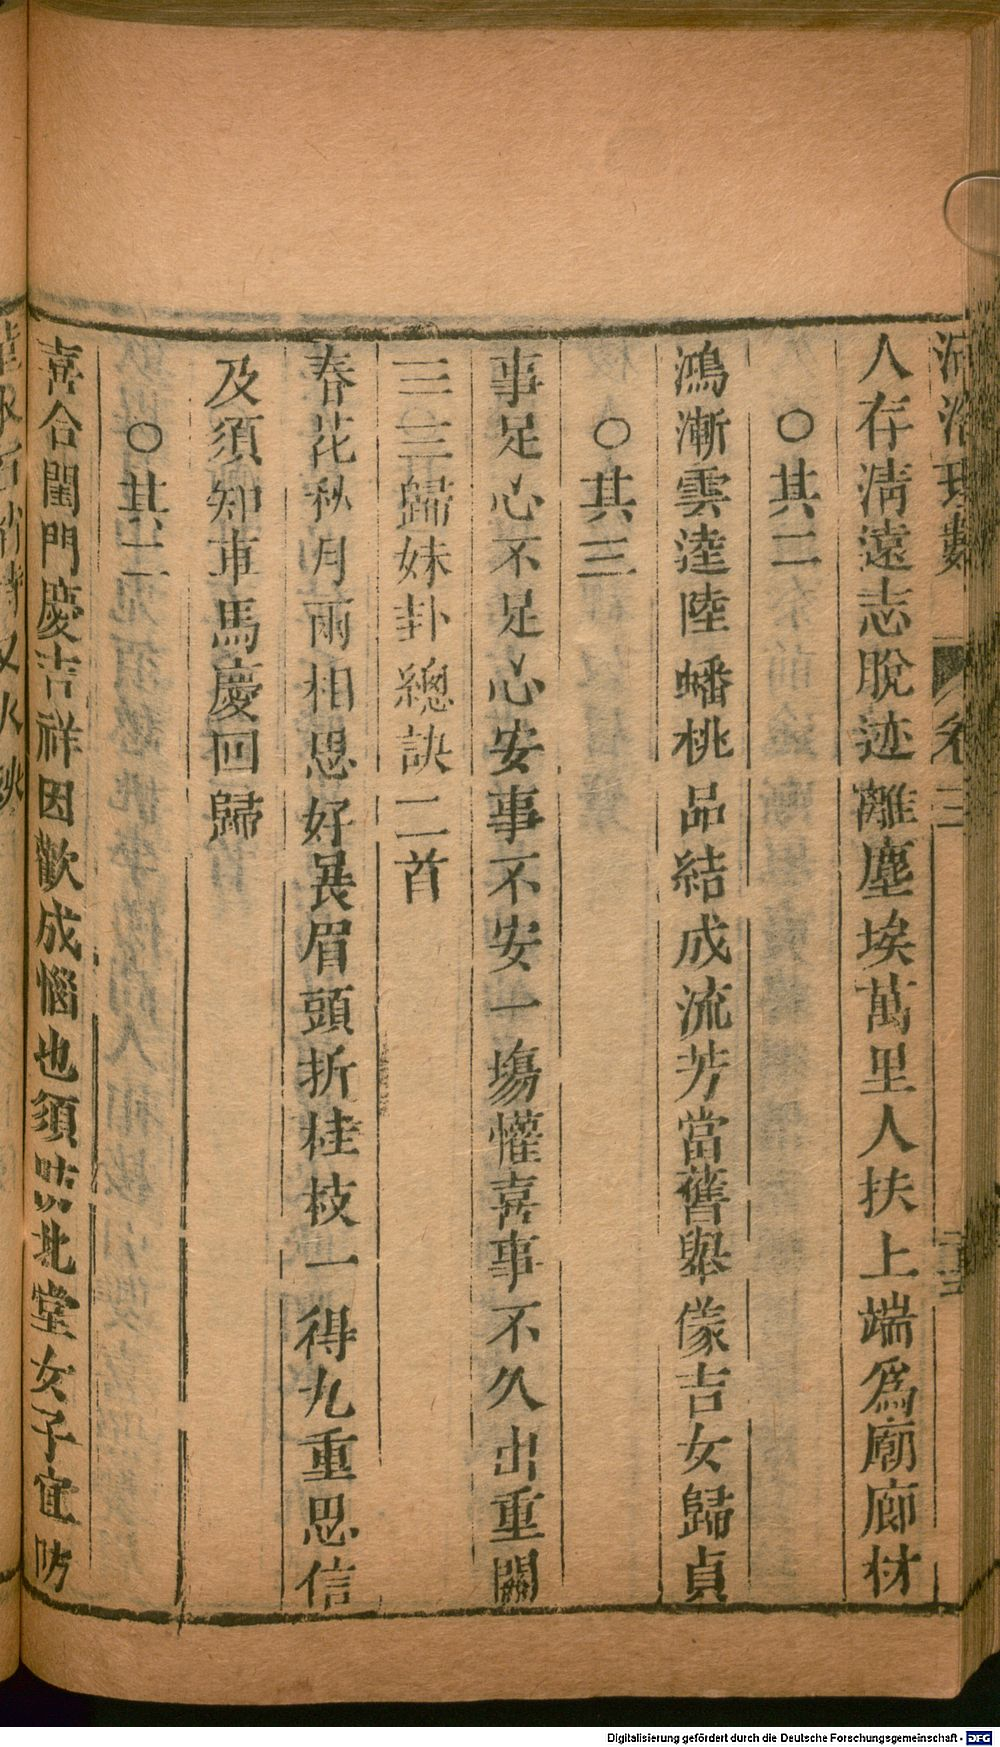 人存淸遠志脫迹離塵埃萬里人扶上端爲廟廊材
○其二
鴻漸雲逵陸蟠桃品結成流芳當舊舉傢吉女歸貞
○其三
事足心不足心安事不安一塲懽喜事不久出重關
三三歸妹卦總訣二首
春花秋月雨相思好展眉頭折桂枝一得九重恩信
及須知車馬慶回歸
○其二
喜合閨門慶吉祥因歡成惱也須 北堂女子宜防
卷三
Digitalisierung gefördert durch die Deutsche Forschungsgemeinschaft - DFG